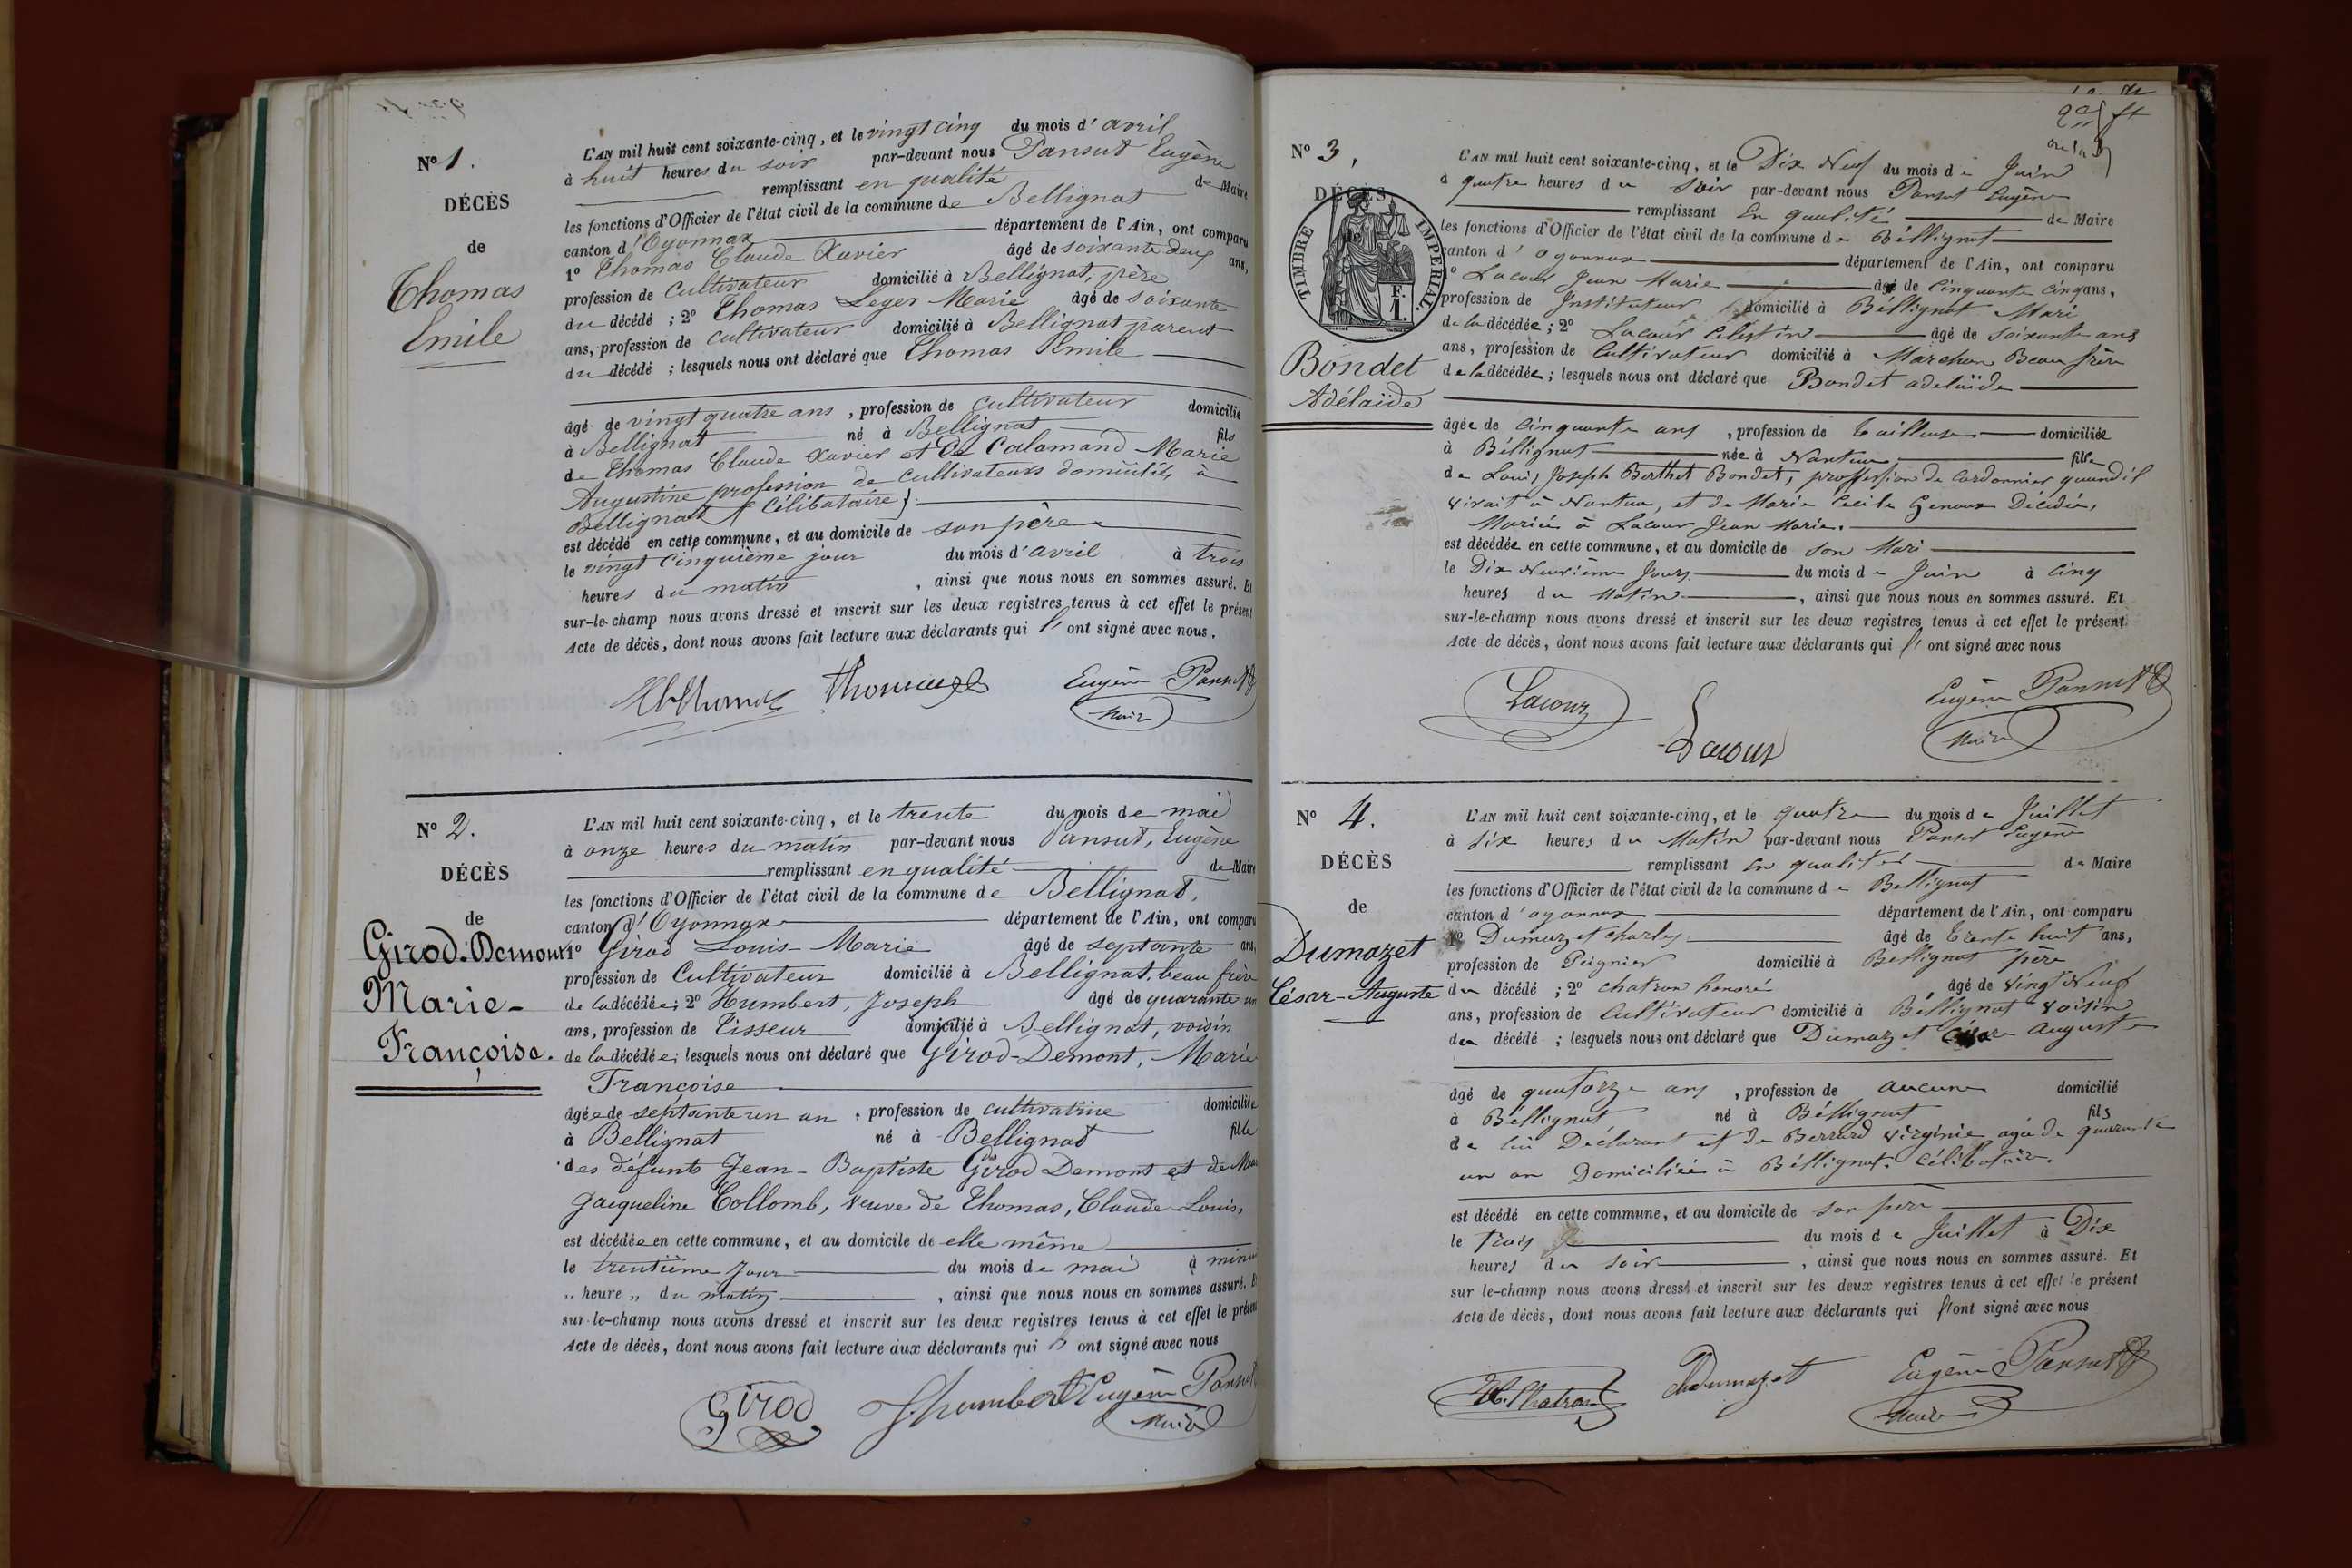 N° 1.
DÉCÈS
de
Thomas
Emile
L'AN mil huit cent soixante-cinq, et le vingt cinq du mois d'avril
à huit heures du soir par-devant nous Pansut Eugène
remplissant en qualité de Maire
les fonctions d'Officier de l'état civil de la commune de Bellignat
canton d'Oyonnax département de l'Ain, ont comparu
1° Thomas Claude Xavier âgé de soixante deux ans,
profession de cultivateur domicilié à Bellignat, père
du décédé ; 2° Thomas Leger Marie âgé de soixante
ans, profession de cultivateur domicilié à Bellignat parent
du décédé ; lesquels nous ont déclaré que Thomas Emile
âgé de vingt quatre ans, profession de cultivateur domicilié
à Bellignat né à Bellignat fils
de Thomas Claude Xavier et de Calamand Marie
Augustine profession de cultivateurs domiciliés à
Bellignat (Célibataire)
est décédé en cette commune, et au domicile de son père
le vingt cinquième jour du mois d'avril à trois
heures du matin, ainsi que nous nous en sommes assuré. Et
sur-le-champ nous avons dressé et inscrit sur les deux registres tenus à cet effet le présent
Acte de décès, dont nous avons fait lecture aux déclarants qui l'ont signé avec nous.
Eugène Pansut
Maire
N° 2.
DÉCÈS
de
Girod-Demont
Marie-
Françoise.
L'AN mil huit cent soixante-cinq, et le trente du mois de mai
à onze heures du matin par-devant nous Pansut, Eugène
remplissant en qualité de Maire
les fonctions d'Officier de l'état civil de la commune de Bellignat,
canton d'Oyonnax département de l'Ain, ont comparu
1° Girod Louis-Marie âgé de septante ans,
profession de Cultivateur domicilié à Bellignat, beau frère
de la décédée ; 2° Humbert, Joseph âgé de quarante un
ans, profession de Tisseur domicilié à Bellignat, voisin
de la décédée ; lesquels nous ont déclaré que Girod-Demont, Marie
Françoise
âgée de septante un an, profession de cultivatrice domiciliée
à Bellignat né à Bellignat fille
des défunts Jean-Baptiste Girod Demont et de
Jacqueline Collomb, veuve de Thomas, Claude-Louis,
est décédée en cette commune, et au domicile de elle même
le trentième jour du mois de mai à minuit
" heure " du matin, ainsi que nous nous en sommes assuré. Et
sur-le-champ nous avons dressé et inscrit sur les deux registres tenus à cet effet le présent
Acte de décès, dont nous avons fait lecture aux déclarants qui l'ont signé avec nous
Girod J. humbert Eugène Pansut
Maire
N° 3,
DÉCÈS
de
TIMBRE IMPERIAL
F. 1.
Bondet
Adélaïde
L'AN mil huit cent soixante-cinq, et le Dix Neuf du mois de Juin
à quatre heures du soir par-devant nous Pansut Eugène
remplissant En qualité de Maire
les fonctions d'Officier de l'état civil de la commune de Béllignat
canton d'oyonnax département de l'Ain, ont comparu
1° Lacour Jean Marie âgé de cinquante cinq ans,
profession de Instituteur domicilié à Béllignat Mari
de la décédée ; 2° Lacour Celestin âgé de soixante ans
ans, profession de Cultivateur domicilié à Marchon Beau frère
de la décédée ; lesquels nous ont déclaré que Bondet adelaïde
âgée de cinquante ans, profession de tailleuse domiciliée
à Béllignat née à Nantua fille
de Louis Joseph Berthet Bondet, proffession de Cordonnier quand il
vivait à Nantua, et de Marie Cécile Genoux Décédée,
Mariée à Lacour Jean Marie.
est décédée en cette commune, et au domicile de son Mari
le Dix Neuvième Jour du mois de Juin à Cinq
heures du Matin, ainsi que nous nous en sommes assuré. Et
sur-le-champ nous avons dressé et inscrit sur les deux registres tenus à cet effet le présent
Acte de décès, dont nous avons fait lecture aux déclarants qui l'ont signé avec nous
Lacour Lacour Eugène Pansut
Maire
N° 4.
DÉCÈS
de
Dumazet
César-Auguste
L'AN mil huit cent soixante-cinq, et le quatre du mois de Juillet
à six heures du Matin par-devant nous Pansut Eugène
remplissant en qualité de Maire
les fonctions d'Officier de l'état civil de la commune de Bellignat
canton d'oyonnax département de l'Ain, ont comparu
1° Dumazet Charles âgé de trente huit ans,
profession de Peignier domicilié à Bellignat père
du décédé ; 2° chatron honoré âgé de vingt Neuf
ans, profession de Cultivateur domicilié à Béllignat voisin
du décédé ; lesquels nous ont déclaré que Dumazet César auguste
âgé de quatorze ans, profession de aucune domicilié
à Béllignat né à Béllignat fils
de lui Déclarant et de Berrard virginie agée de quarante
un an Domiciliée à Béllignat. Célibataire.
est décédé en cette commune, et au domicile de son père
le trois du mois de Juillet à Dix
heures du soir, ainsi que nous nous en sommes assuré. Et
sur le-champ nous avons dressé et inscrit sur les deux registres tenus à cet effet le présent
Acte de décès, dont nous avons fait lecture aux déclarants qui l'ont signé avec nous
H. Chatron Dumazet Eugène Pansut
Maire